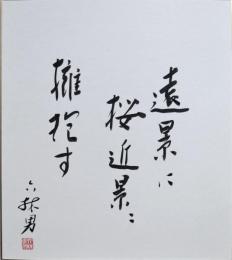 遠景に
桜近景に
擁抱す
六林男